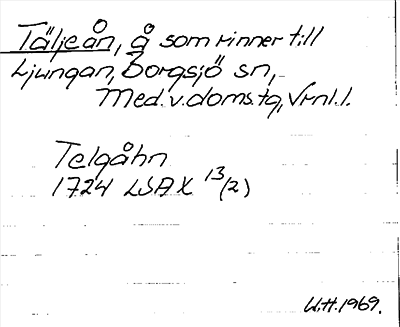 Täljeån, å som rinner till
Ljungan, Borgsjö sn,
Med. v. doms. tg, Vrnl. l.
Telgåhn
1724 LSA X 13/2)
U.H. 1969.